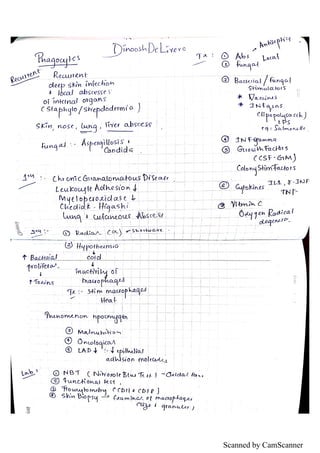 Dinoosh De Livera
Phagocytes
Recurrent
Recurrent
deep skin infection
+ local abscesses
of internal organs
(Staphylo / Streptodermia)
Skin, nose, lung, liver abscess
Fungal :- Aspergillosis +
Candida
1ry :- Chronic Granulomatous Disease
Leukocyte Adhesion ↓
Myeloperoxidase ↓
Chediak - Higashi
Lung + cutaneous Abscess
Tx :- ① Abs Local Antiseptic
② Fungal
③ Bacterial / Fungal
Stimulators
* Vaccines
* Antigens
(Lipopolysacch)
LPS
eg:- Salmonella
④ INF gamma
⑤ Growth Factors
(CSF - GM)
Colony Stim Factors
⑥ Cytokines IL8, γ-INF
TNF
⑦ Vitamin C
Oxygen Radical
① Radiat. (Ca)
② Hypothermia
↑ Bacterial cold
proliferat.
↓ inactivity of
↑ Toxins macrophages
Tx :- Stim macrophages
Heat
Phenomenon
③ Malnutrition
④ Oncological
⑤ LAD ↓ :- ↓ epithelial
adhesion molecules
Lab :- ① NBT (Nitrozole Blue Test)
② Functional test
Flowcytometry (CD11 + CD18)
④ Skin Biopsy → Examinat. of macrophages
(Size, granules)
Scanned by CamScanner